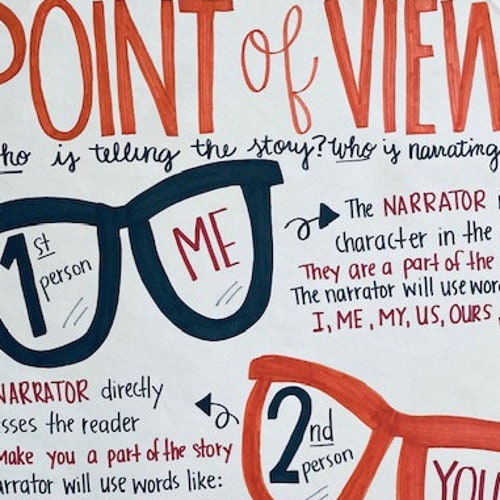 POINT of VIEW
who is telling the story? Who is narrating
1st person
ME
The NARRATOR
character in the
They are a part of the
The narrator will use wor
I, ME, MY, US, OURS,
NARRATOR directly
sses the reader
make you a part of the story
arrator will use words like:
2nd person
YOU